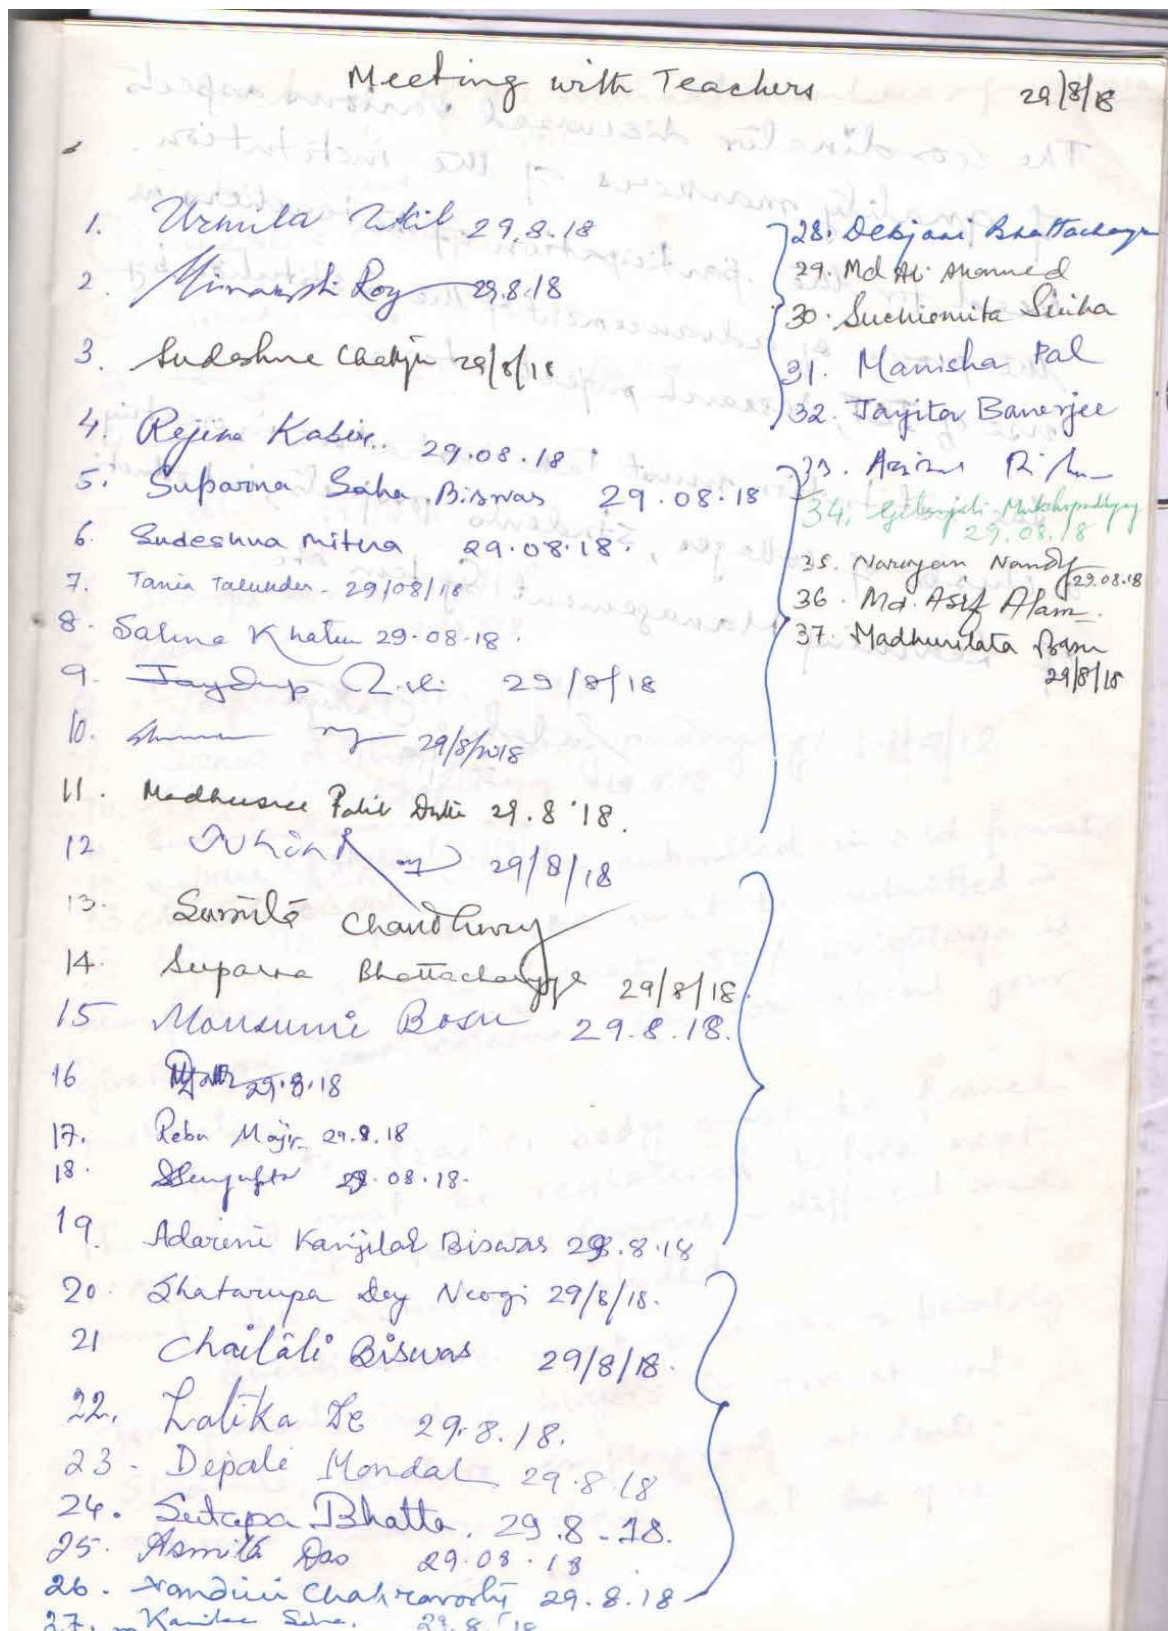 Meeting with Teachers 29/8/18
1. Urmila Ukil 29.8.18
2. Minakshi Roy 29.8.18
3. Sudeshna 29/8/18
4. Rejina Kabir. 29.08.18
5. Suparna Saha Biswas 29.08.18
6. Sudeshna Mitra 29.08.18.
7. Tania Talukder. 29/08/18
8. Salma Khatun 29.08.18.
9. Jaydip 29/8/18
10. 29/8/2018
11. Madhusree Palit Dutta 29.8.'18.
12 29/8/18
13. Sumita Chaudhury
14. Suparna Bhattacharyya 29/8/18
15 Mousumi Basu 29.8.18.
16 29.8.18
17. Reba Maji 29.8.18
18. SSengupta 29.08.18.
19. Adarini Kanjilal Biswas 29.8.18
20. Shatarupa Dey Neogi 29/8/18.
21 Chaitali Biswas 29/8/18.
22. Latika De 29.8.18.
23- Dipali Mondal 29.8.18
24. Sutapa Bhatta. 29.8-18.
25. Asmita Das 29.08.18
26. Nandini Chakravorty 29.8.18
27. Kanika Saha. 29.8.'18
28. Debjani Bhattacharya
29. Md Ali Ahamed
30. Suchismita Sinha
31. Manisha Pal
32. Jayita Banerjee
33.
34. Gitanjali Mukhopadhyay
29.08.18
35. Narayan Nandy 29.08.18
36. Md. Asif Alam.
37. Madhurilata Basu
29/8/18